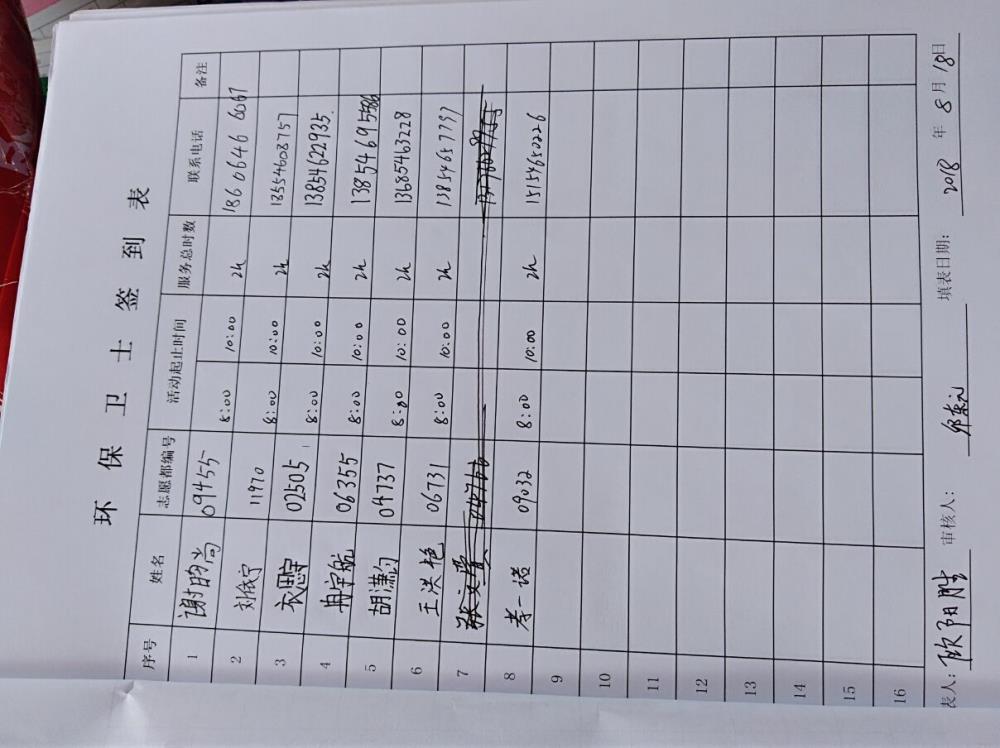 环保卫士签到表
序号 姓名 志愿都编号 活动起止时间 服务总时数 联系电话 备注
1 谢昀尚 09455 8:00 10:00 2h 18606466067
2 刘依宁 11970 8:00 10:00 2h 18554608757
3 衣思宇 02505 8:00 10:00 2h 13854622935
4 冉宇航 06355 8:00 10:00 2h 13854695586
5 胡潇匀 04737 8:00 10:00 2h 13685463228
6 王洪艳 06731 8:00 10:00 2h 13854657797
7 04766
8 李一诺 09032 8:00 10:00 2h 15154650226
9
10
11
12
13
14
15
16
表人: 欧阳胜 审核人: 填表日期: 2018 年 8 月 18 日